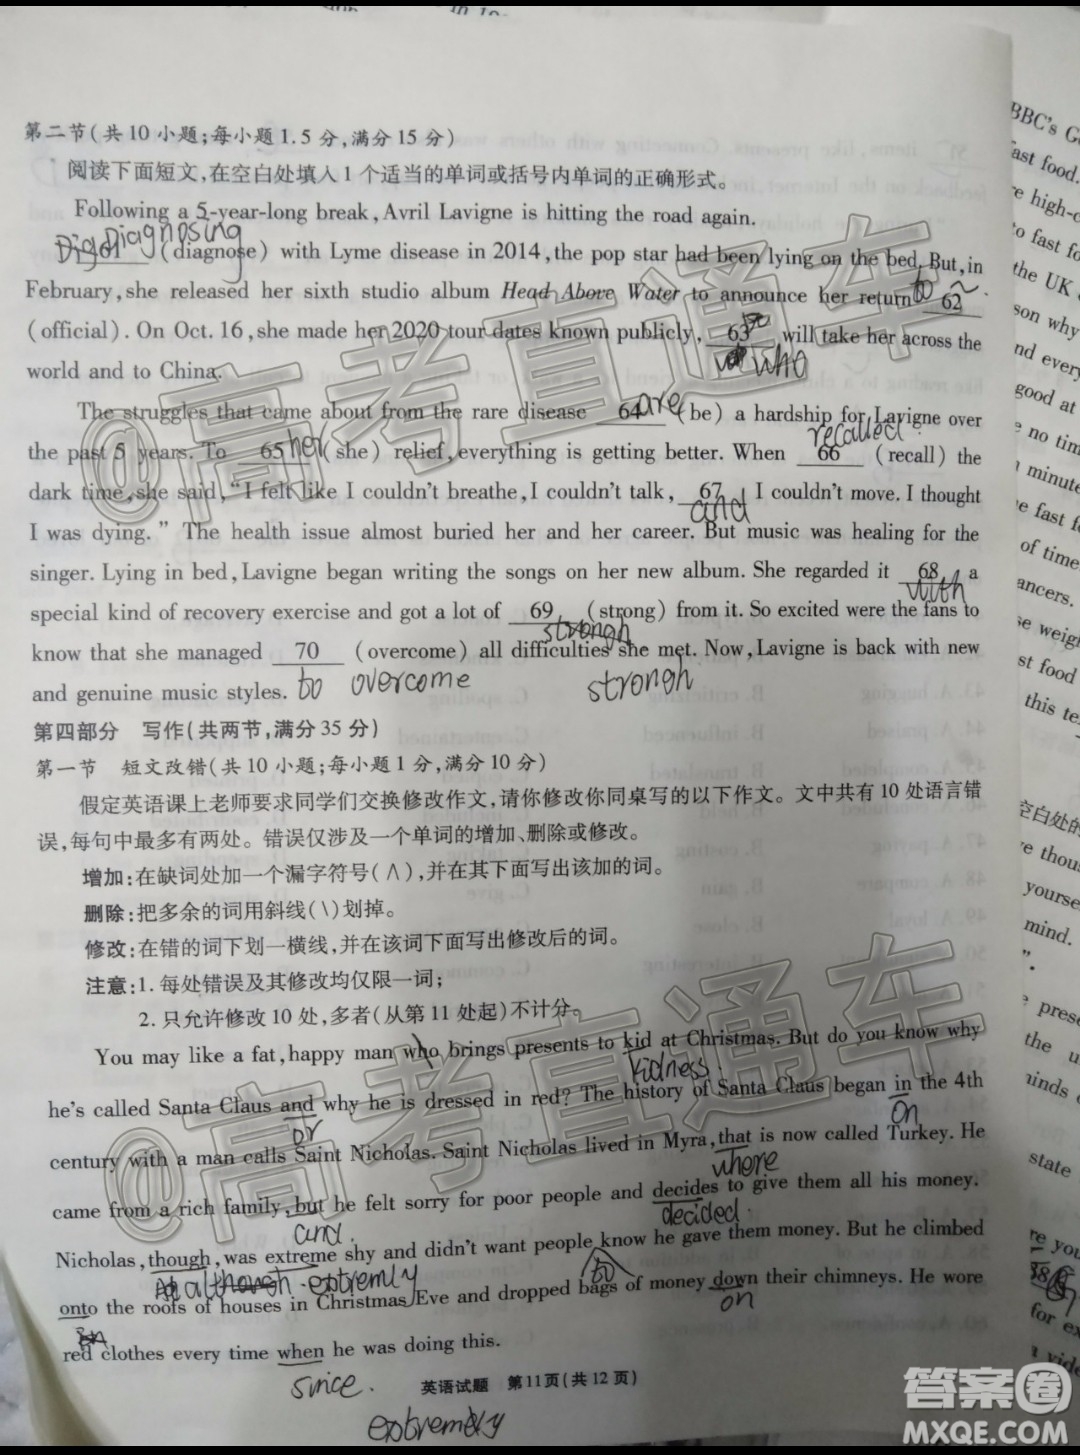 第二节(共10小题;每小题1.5分,满分15分)
阅读下面短文,在空白处填入1个适当的单词或括号内单词的正确形式。
Following a 5-year-long break, Avril Lavigne is hitting the road again.
Diagnosing
61 (diagnose) with Lyme disease in 2014, the pop star had been lying on the bed. But, in
February, she released her sixth studio album Head Above Water to announce her return to 62
(official). On Oct. 16, she made her 2020 tour dates known publicly, 63 will take her across the
who
world and to China.
The struggles that came about from the rare disease 64 are (be) a hardship for Lavigne over
recalled
the past 5 years. To 65 her (she) relief, everything is getting better. When 66 (recall) the
dark time, she said, "I felt like I couldn't breathe, I couldn't talk, 67 I couldn't move. I thought
and
I was dying." The health issue almost buried her and her career. But music was healing for the
singer. Lying in bed, Lavigne began writing the songs on her new album. She regarded it 68 a
with
special kind of recovery exercise and got a lot of 69 (strong) from it. So excited were the fans to
strongh
know that she managed 70 (overcome) all difficulties she met. Now, Lavigne is back with new
and genuine music styles. to overcome strongh
第四部分 写作(共两节,满分35分)
第一节 短文改错(共10小题;每小题1分,满分10分)
假定英语课上老师要求同学们交换修改作文,请你修改你同桌写的以下作文。文中共有10处语言错
误,每句中最多有两处。错误仅涉及一个单词的增加、删除或修改。
增加:在缺词处加一个漏字符号(∧),并在其下面写出该加的词。
删除:把多余的词用斜线(\)划掉。
修改:在错的词下划一横线,并在该词下面写出修改后的词。
注意:1. 每处错误及其修改均仅限一词;
2. 只允许修改10处,多者(从第11处起)不计分。
You may like a fat, happy man who brings presents to kid at Christmas. But do you know why
kidness
he's called Santa Claus and why he is dressed in red? The history of Santa Claus began in the 4th
or on
century with a man calls Saint Nicholas. Saint Nicholas lived in Myra, that is now called Turkey. He
where
came from a rich family, but he felt sorry for poor people and decides to give them all his money.
and. decided.
Nicholas, though, was extreme shy and didn't want people know he gave them money. But he climbed
although extremly to
onto the roofs of houses in Christmas Eve and dropped bags of money down their chimneys. He wore
on
red clothes every time when he was doing this.
since.
英语试题 第11页(共12页)
extremely
@高考直通车
@高考直通车
答案圈
MXQE.COM
BBC's
fast food.
high-c
to fast fo
the UK
son why
nd every
good at
no time
minute
fast f
of time
ancers.
weigh
st food
this te
空白处的
thous
yourse
mind.
prese
the u
minds
state
for ex